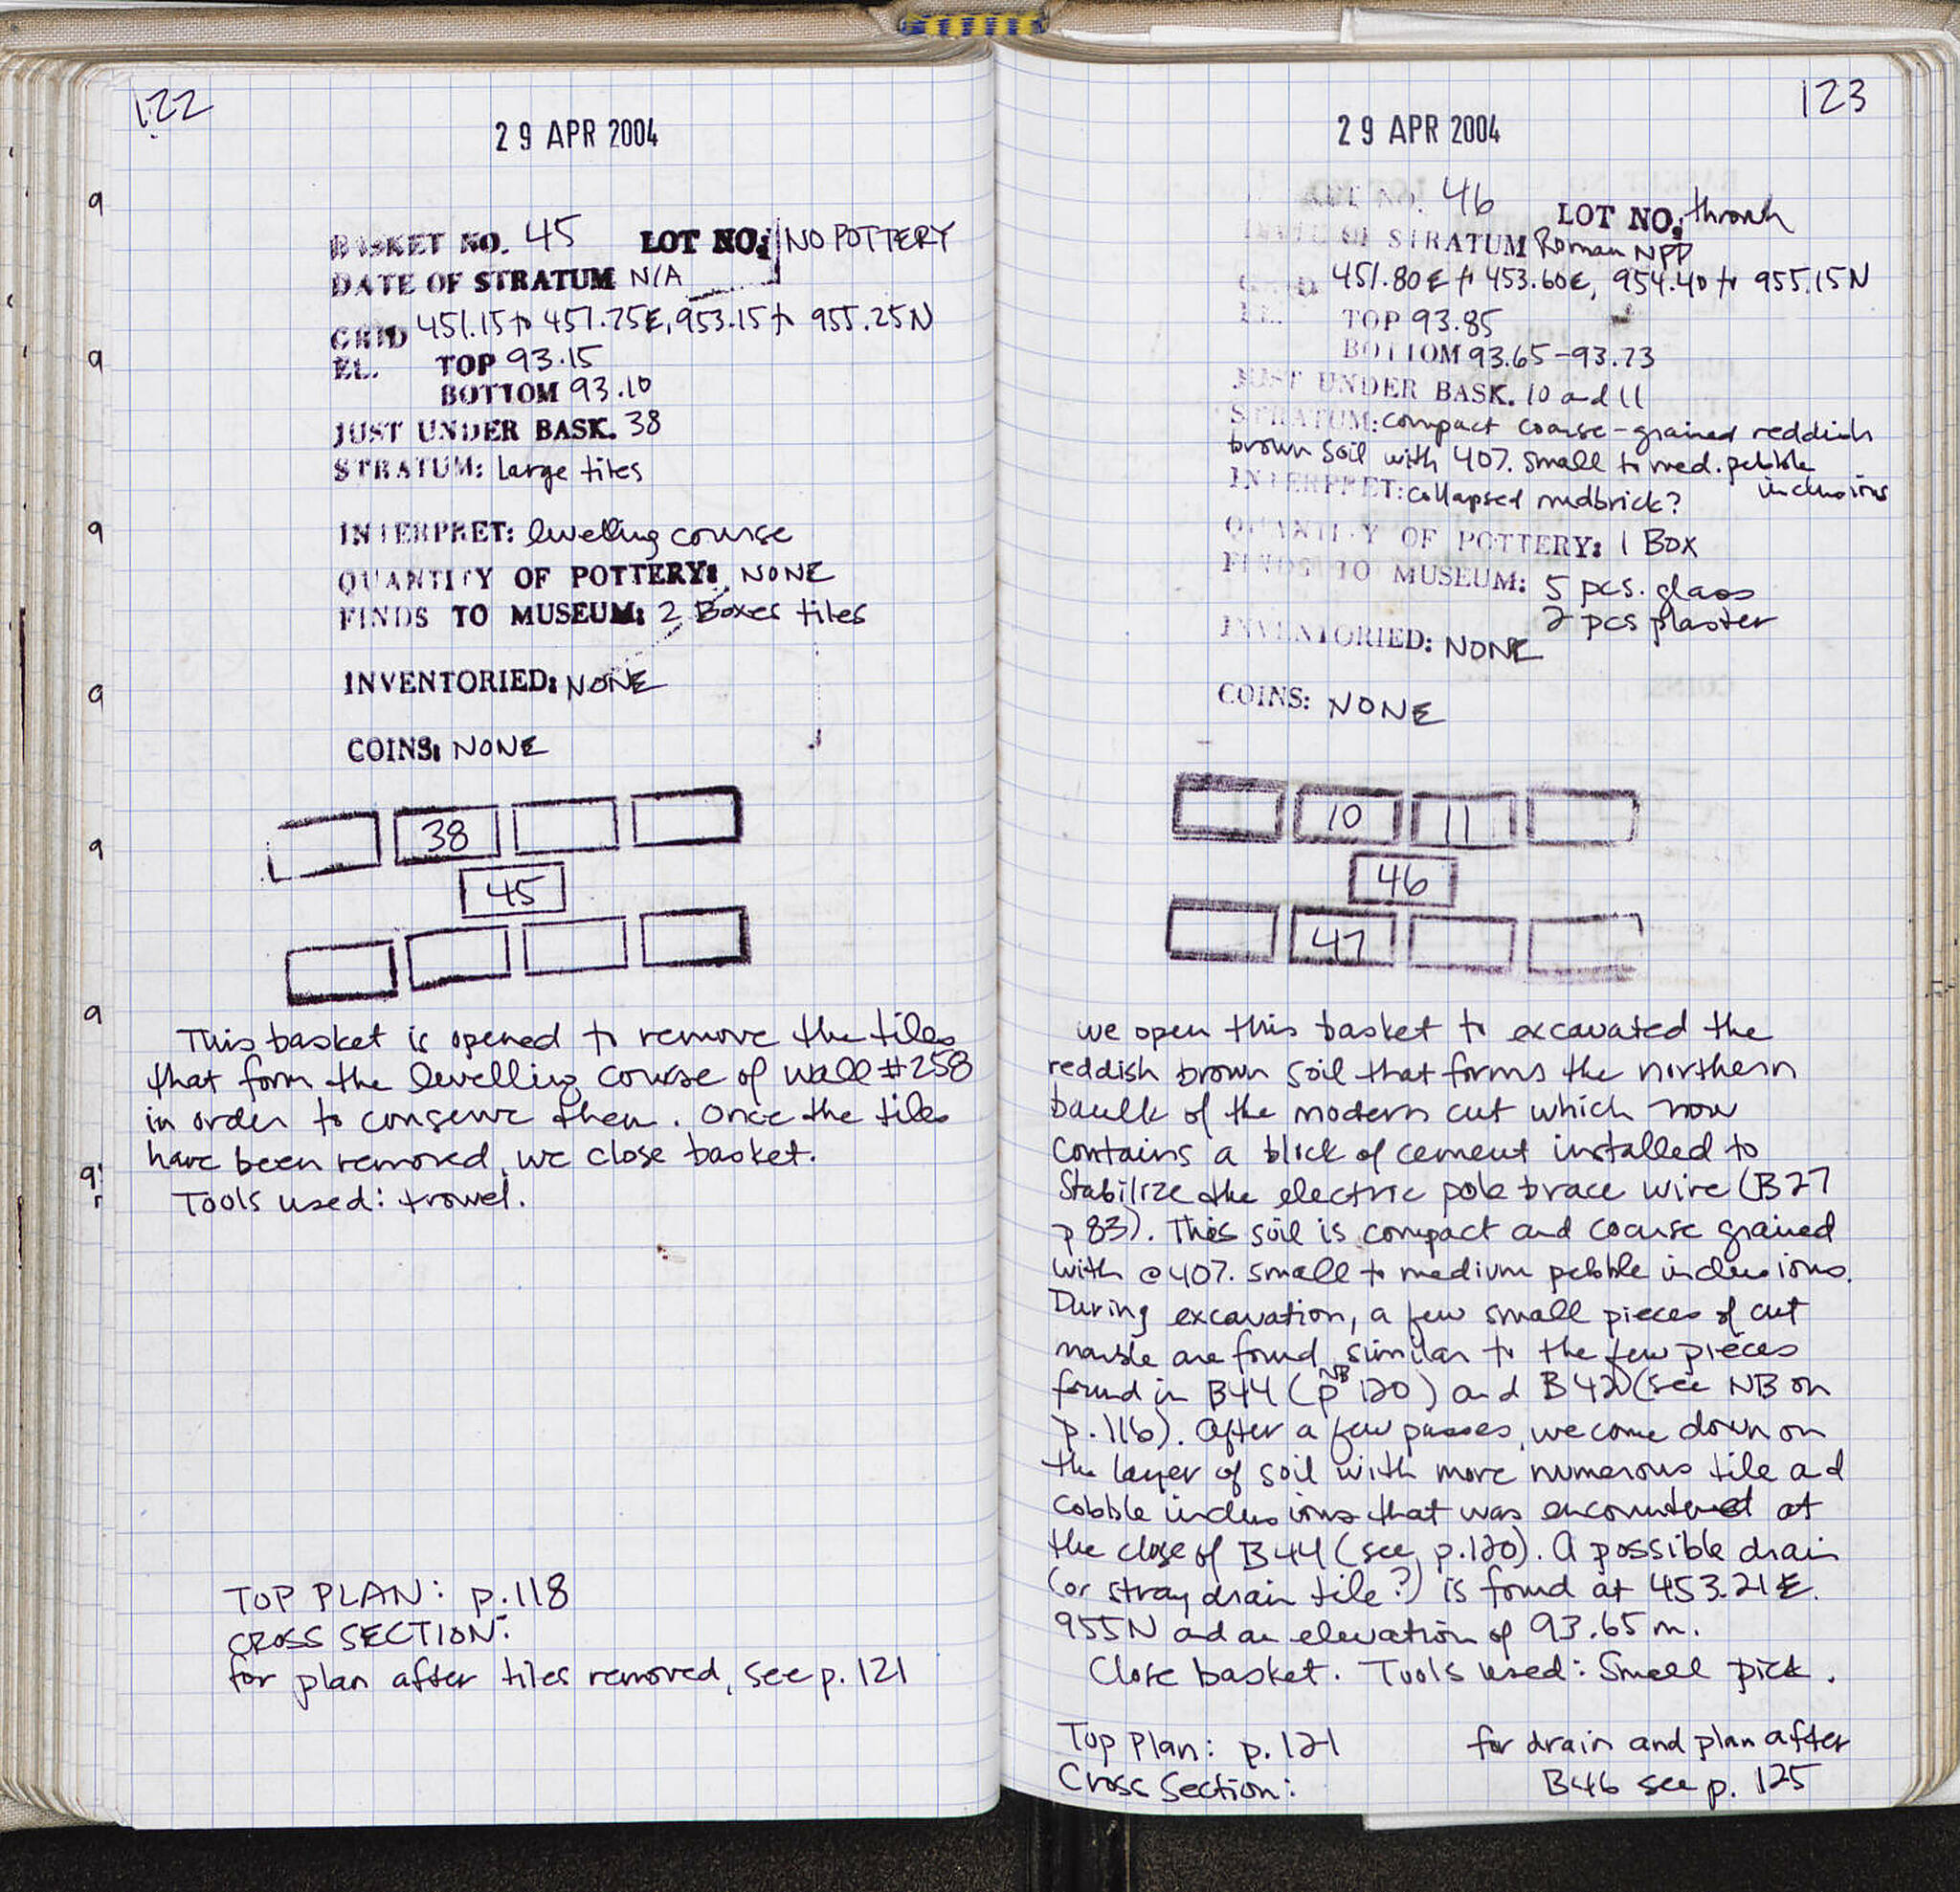 122
29 APR 2004
BASKET NO. 45 LOT NO: NO POTTERY
DATE OF STRATUM N/A
GRID 451.15 to 451.75E, 953.15 to 955.25N
EL. TOP 93.15
BOTTOM 93.10
JUST UNDER BASK. 38
STRATUM: Large tiles
INTERPRET: levelling course
QUANTITY OF POTTERY: NONE
FINDS TO MUSEUM: 2 Boxes tiles
INVENTORIED: NONE
COINS: NONE
38
45
This basket is opened to remove the tiles
that form the levelling course of wall #258
in order to conserve them. Once the tiles
have been removed, we close basket.
Tools used: trowel.
TOP PLAN: p.118
CROSS SECTION:
for plan after tiles removed, see p. 121
123
29 APR 2004
KET NO. 46 LOT NO: throwh
DATE OF STRATUM Roman NPD
GRID 451.80E to 453.60E, 954.40 to 955.15N
EL. TOP 93.85
BOTTOM 93.65-93.73
JUST UNDER BASK. 10 and 11
STRATUM: compact coarse-grained reddish
brown soil with 40% small to med. pebble
inclusions
INTERPRET: collapsed mudbrick?
QUANTITY OF POTTERY: 1 Box
FINDS TO MUSEUM: 5 pcs. glass
2 pcs plaster
INVENTORIED: NONE
COINS: NONE
10 11
46
47
we open this basket to excavated the
reddish brown soil that forms the northern
baulk of the modern cut which now
contains a block of cement installed to
stabilize the electric pole brace wire (B27
p 83). This soil is compact and coarse grained
with @ 40% small to medium pebble inclusions.
During excavation, a few small pieces of cut
marble are found, similar to the few pieces
found in B44 (p NB 120) and B42 (see NB on
p.116). After a few passes, we come down on
the layer of soil with more numerous tile and
cobble inclusions that was encountered at
the close of B44 (see p.120). A possible drain
(or stray drain tile?) is found at 453.21E.
955N and an elevation of 93.65 m.
Close basket. Tools used: Small pick.
Top Plan: p. 121 for drain and plan after
Cross Section: B46 see p. 125